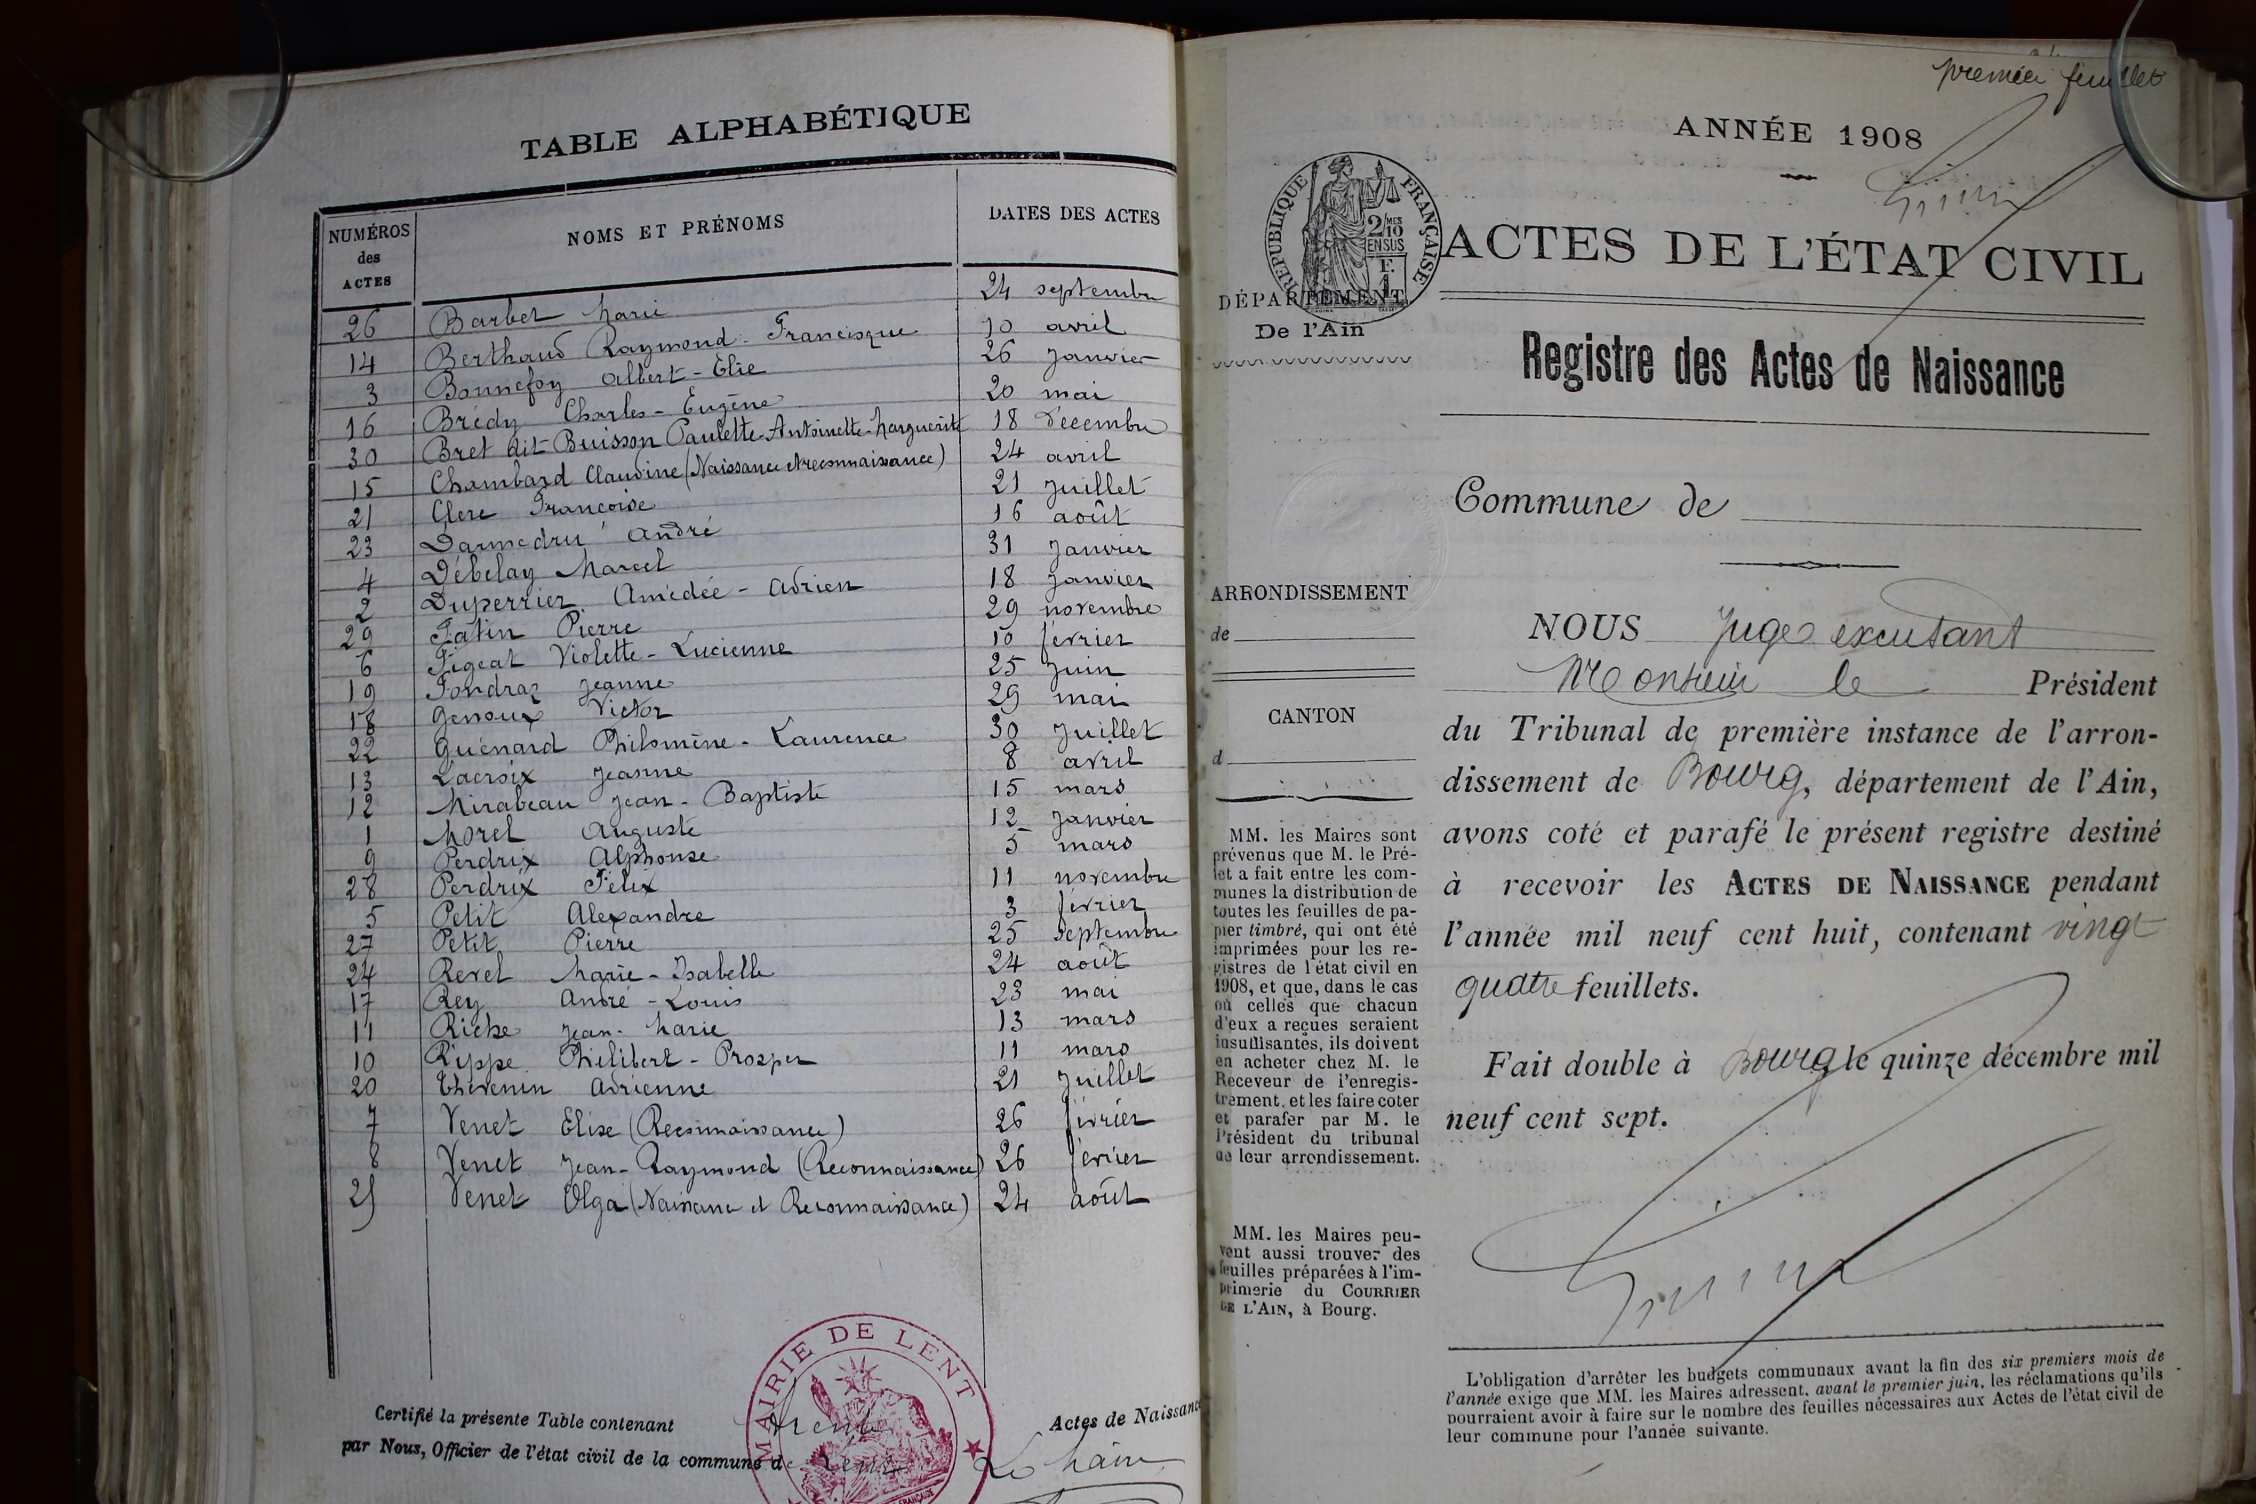 TABLE ALPHABÉTIQUE
NUMÉROS des ACTES NOMS ET PRÉNOMS DATES DES ACTES
26 Barbet Marie 24 septembre
14 Berthaud Raymond-Francisque 10 avril
3 Bonnefoy Albert-Elie 26 Janvier
16 Brédy Charles-Eugène 20 mai
30 Bret dit Buisson Paulette-Antoinette-Marguerite 18 Décembre
15 Chambard Claudine (Naissance et reconnaissance) 24 avril
21 Clerc Françoise 21 Juillet
23 Darmedru André 16 août
4 Débelay Marcel 31 Janvier
2 Duperrier Amédée-Adrien 18 Janvier
29 Fatin Pierre 29 novembre
6 Figeat Violette-Lucienne 10 février
19 Fondraz Jeanne 25 Juin
18 Genoux Victor 29 mai
22 Guénard Philomène-Laurence 30 Juillet
13 Lacroix Jeanne 8 avril
12 Mirabeau Jean-Baptiste 15 mars
1 Morel Auguste 12 Janvier
9 Perdrix Alphonse 5 mars
28 Perdrix Félix 11 novembre
5 Petit Alexandre 3 février
27 Petit Pierre 25 septembre
24 Revel Marie-Isabelle 24 août
17 Rey André-Louis 23 mai
11 Riche Jean-Marie 13 mars
10 Rippe Philibert-Prosper 11 mars
20 Thévenin Adrienne 21 Juillet
7 Venet Elise (Reconnaissance) 26 février
8 Venet Jean-Raymond (Reconnaissance) 26 février
25 Venet Olga (Naissance et Reconnaissance) 24 août
Certifié la présente Table contenant trente Actes de Naissance
par Nous, Officier de l'état civil de la commune de Lent
Le Maire
MAIRIE DE LENT
premier feuillet
ANNÉE 1908
RÉPUBLIQUE FRANÇAISE
2/10 MES
EN SUS
F. 1
ACTES DE L'ÉTAT CIVIL
DÉPARTEMENT
De l'Ain
Registre des Actes de Naissance
Commune de
ARRONDISSEMENT
de
CANTON
d
MM. les Maires sont
prévenus que M. le Pré-
fet a fait entre les com-
munes la distribution de
toutes les feuilles de pa-
pier timbré, qui ont été
imprimées pour les re-
gistres de l'état civil en
1908, et que, dans le cas
où celles que chacun
d'eux a reçues seraient
insuffisantes, ils doivent
en acheter chez M. le
Receveur de l'enregis-
trement, et les faire coter
et parafer par M. le
Président du tribunal
de leur arrondissement.
MM. les Maires peu-
vent aussi trouver des
feuilles préparées à l'im-
primerie du COURRIER
DE L'AIN, à Bourg.
NOUS Juge excusant
Monsieur le Président
du Tribunal de première instance de l'arron-
dissement de Bourg, département de l'Ain,
avons coté et parafé le présent registre destiné
à recevoir les ACTES DE NAISSANCE pendant
l'année mil neuf cent huit, contenant vingt
quatre feuillets.
Fait double à Bourg le quinze décembre mil
neuf cent sept.
L'obligation d'arrêter les budgets communaux avant la fin des six premiers mois de
l'année exige que MM. les Maires adressent, avant le premier juin, les réclamations qu'ils
pourraient avoir à faire sur le nombre des feuilles nécessaires aux Actes de l'état civil de
leur commune pour l'année suivante.